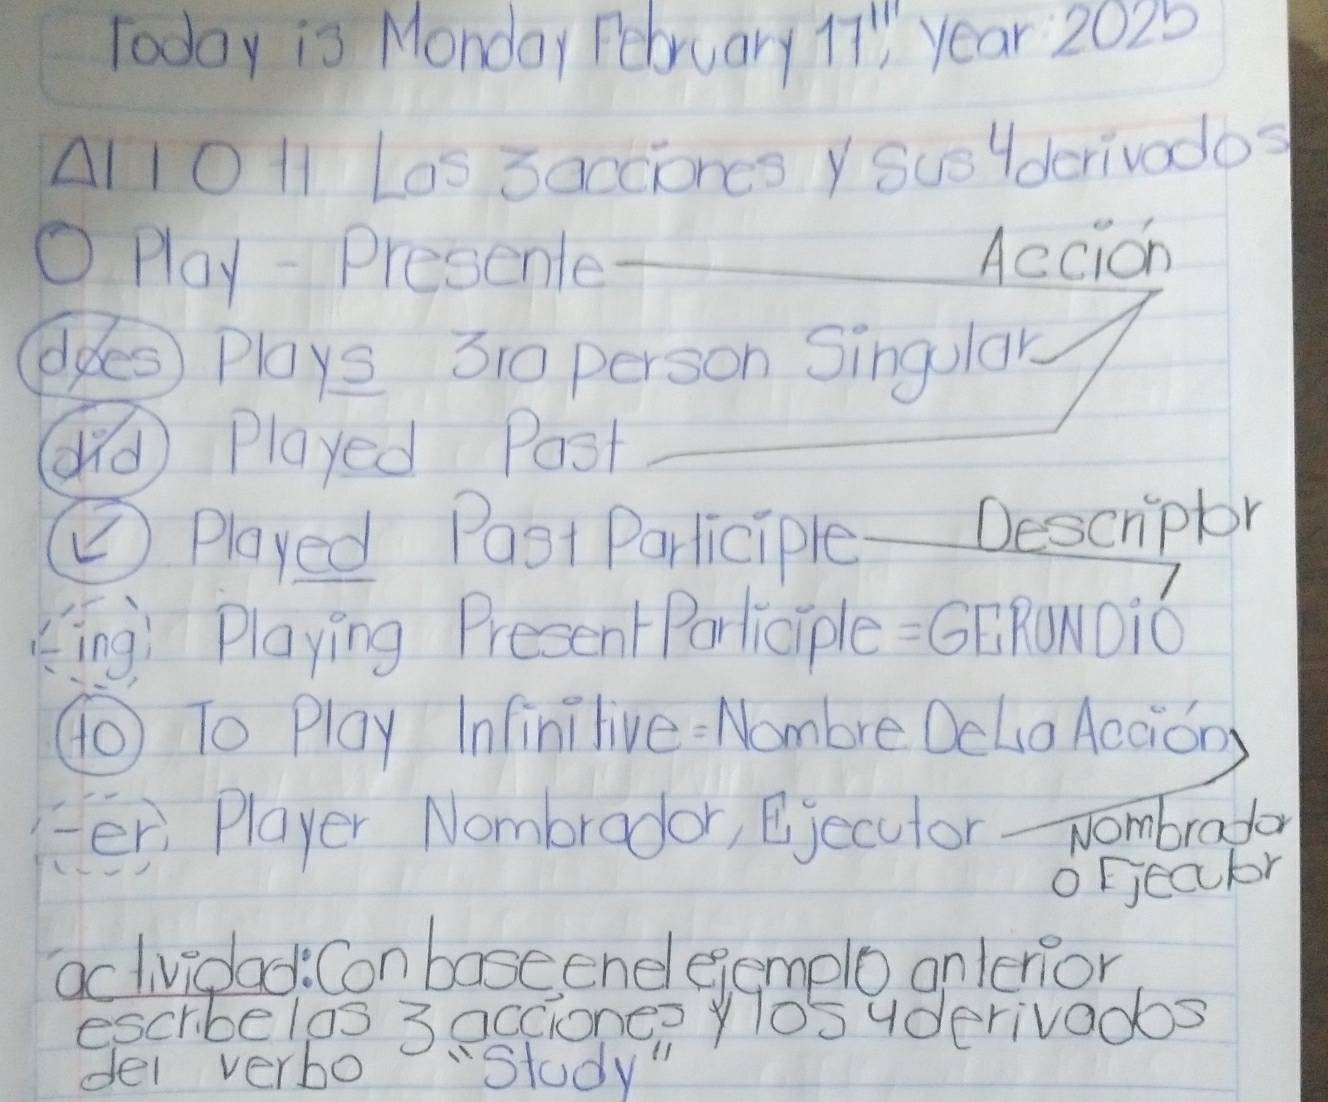 Today is Monday February 17th, year 2025
A1 1 O H Las 3 acciones y sus 4 derivados
O Play - Presente Acción
does Plays 3ra person Singular
did Played Past
✓ Played Past Participle Descriptor
-ing Playing Present Participle = GERUNDiO
to To Play Infinitive = Nombre De La Acción
-er Player Nombrador, Ejecutor Nombrador
o Ejecutor
actividad: Con base en el ejemplo anterior
escribe las 3 acciones y los 4 derivados
del verbo "Study"